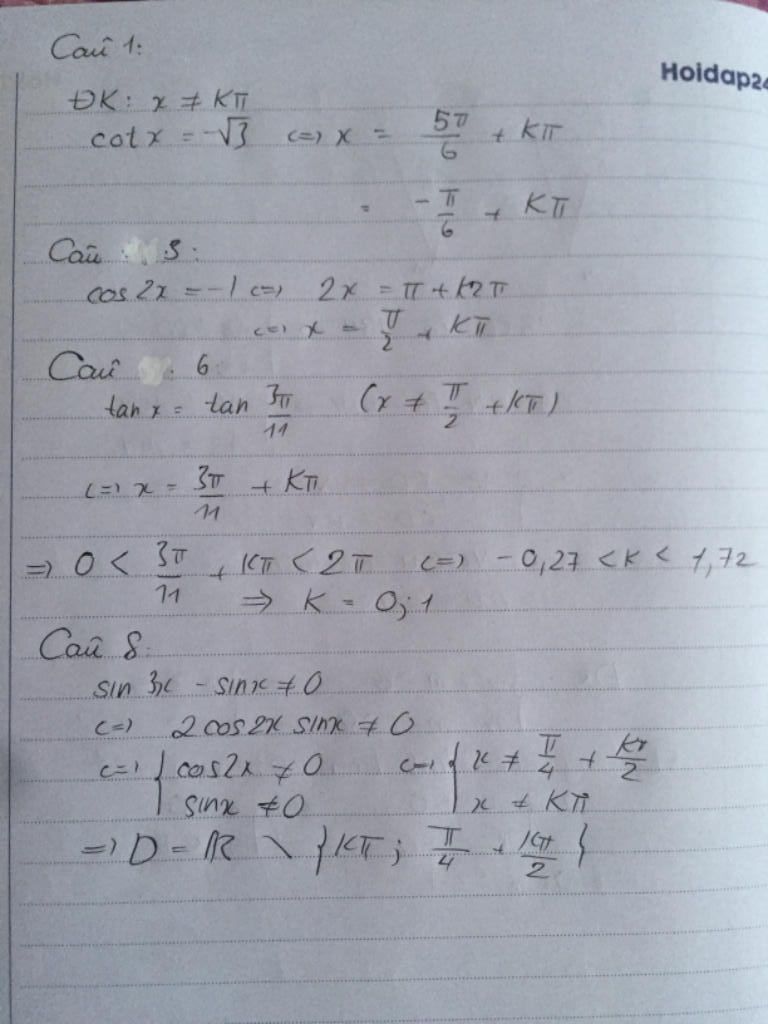 Câu 1:
Hoidap24
ĐK: x ≠ Kπ
cot x = -√3 <=> x = 5π/6 + Kπ
= -π/6 + Kπ
Câu 3:
cos 2x = -1 <=> 2x = π + K2π
<=> x = π/2 + Kπ
Câu 6
tan x = tan 3π/11 (x ≠ π/2 + Kπ)
<=> x = 3π/11 + Kπ
=> 0 < 3π/11 + Kπ < 2π <=> -0,27 < K < 1,72
=> K = 0; 1
Câu 8.
sin 3x - sinx ≠ 0
<=> 2 cos2x sinx ≠ 0
<=> { cos2x ≠ 0 <=> { x ≠ π/4 + Kπ/2
sinx ≠ 0 x ≠ Kπ
=> D = ℝ \ { Kπ; π/4 + Kπ/2 }